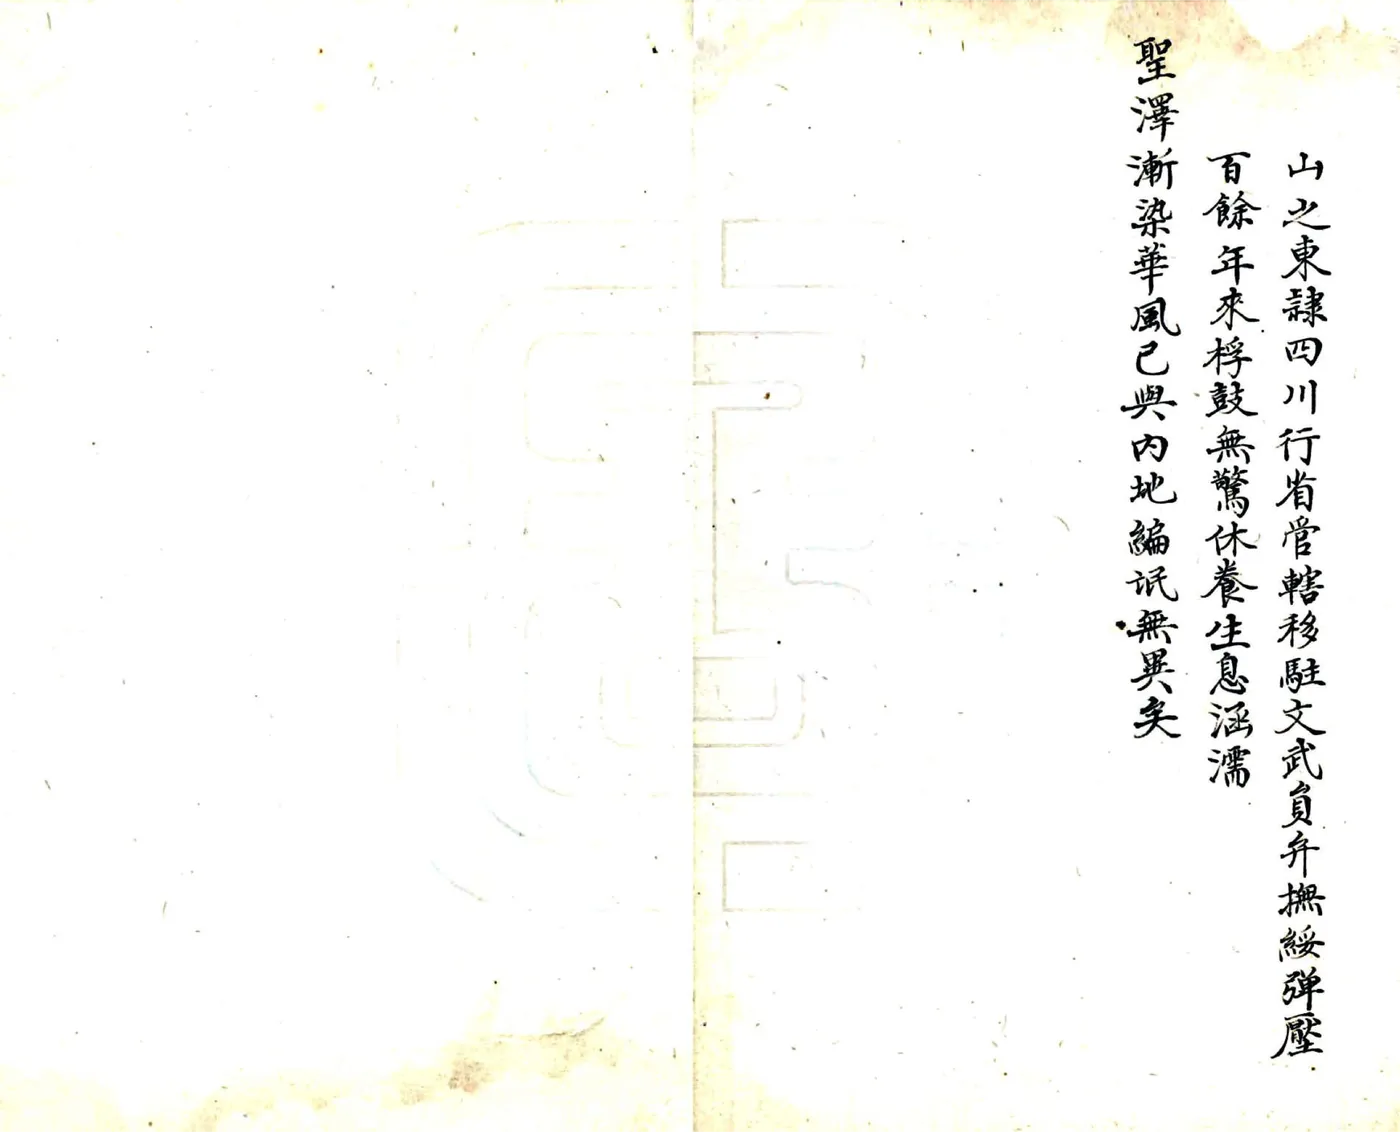 山之東隸四川行省管轄移駐文武員弁撫綏弹壓
百餘年來桴鼓無驚休養生息涵濡
聖澤漸染華風已與內地編氓無異矣